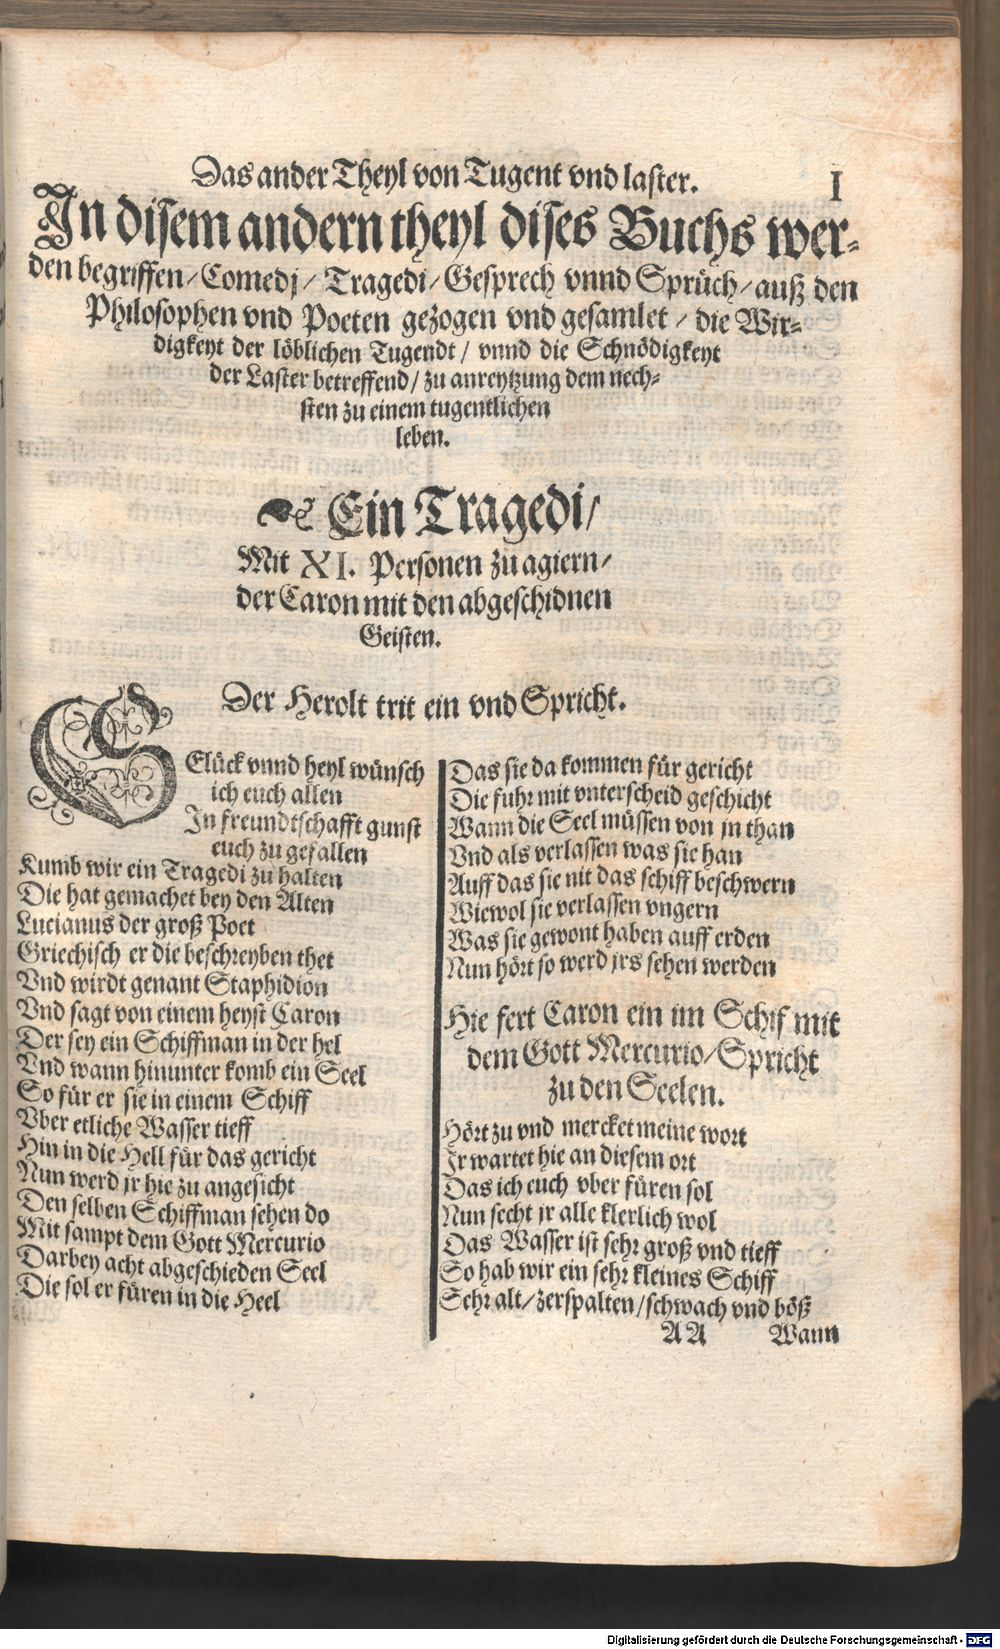 Das ander Theyl von Tugent vnd laster.
I
In disem andern theyl dises Buchs wer-
den begriffen / Comedj / Tragedi / Gesprech vnnd Sprüch / auß den
Philosophen vnd Poeten gezogen vnd gesamlet / die Wir-
digkeyt der löblichen Tugendt / vnnd die Schnödigkeyt
der Laster betreffend / zu anreytzung dem nech-
sten zu einem tugentlichen
leben.
Ein Tragedi /
Mit XI. Personen zu agiern /
der Caron mit den abgeschidnen
Geisten.
Der Herolt trit ein vnd Spricht.
GElück vnnd heyl wünsch
ich euch allen
In freundtschafft gunst
euch zu gefallen
Kumb wir ein Tragedi zu halten
Die hat gemachet bey den Alten
Lucianus der groß Poet
Griechisch er die beschreyben thet
Vnd wirdt genant Staphidion
Vnd sagt von einem heyst Caron
Der sey ein Schiffman in der hel
Vnd wann hinunter komb ein Seel
So für er sie in einem Schiff
Vber etliche Wasser tieff
Hin in die Hell für das gericht
Nun werd jr hie zu angesicht
Den selben Schiffman sehen do
Mit sampt dem Gott Mercurio
Darbey acht abgeschieden Seel
Die sol er füren in die Heel
Das sie da kommen für gericht
Die fuhr mit vnterscheid geschicht
Wann die Seel müssen von jn than
Vnd als verlassen was sie han
Auff das sie nit das schiff beschwern
Wiewol sie verlassen vngern
Was sie gewont haben auff erden
Nun hört so werd jrs sehen werden
Hie fert Caron ein im Schif mit
dem Gott Mercurio / Spricht
zu den Seelen.
Hört zu vnd mercket meine wort
Ir wartet hie an diesem ort
Das ich euch vber füren sol
Nun secht jr alle klerlich wol
Das Wasser ist sehr groß vnd tieff
So hab wir ein sehr kleines Schiff
Sehr alt / zerspalten / schwach vnd böß
AA Wann
Digitalisierung gefördert durch die Deutsche Forschungsgemeinschaft - DFG